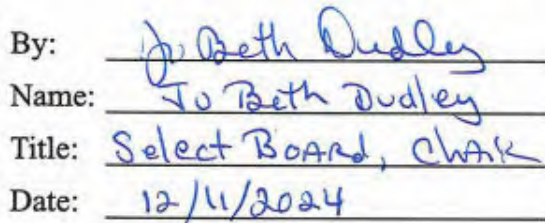 By: Jo Beth Dudley
Name: Jo Beth Dudley
Title: Select Board, Chair
Date: 12/11/2024